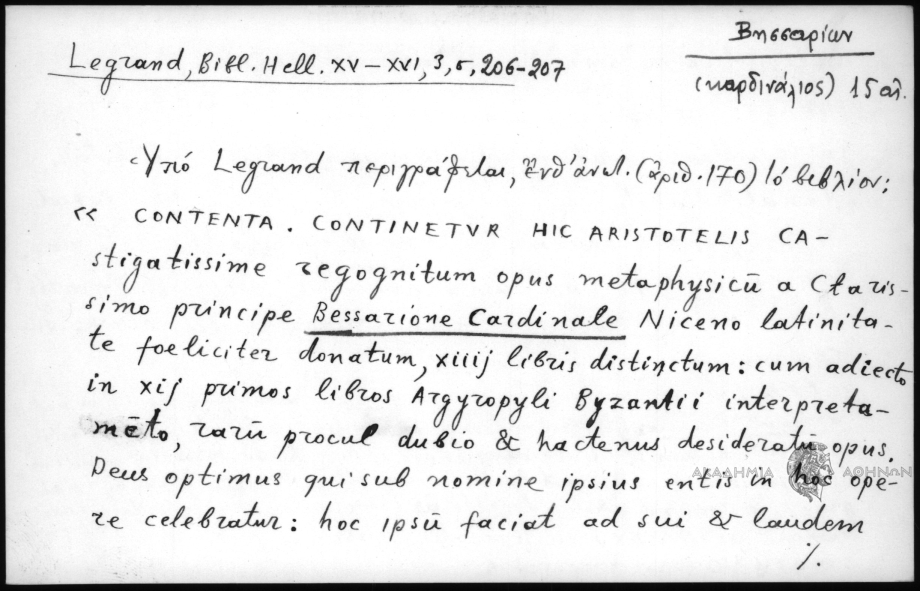 Βησσαρίων
(καρδινάλιος) 15 αἰ.
Legrand, Bibl. Hell. XV–XVI, 3, 5, 206-207
Ὑπό Legrand περιγράφεται, ἔνθ' ἀνωτ. (ἀριθ. 170) τό βιβλίον:
« CONTENTA. CONTINETVR HIC ARISTOTELIS CA-
stigatissime regognitum opus metaphysicū a Claris-
simo principe Bessarione Cardinale Niceno latinita-
te foeliciter donatum, xiiij libris distinctum: cum adiecto
in xij primos libros Argyropyli Byzantii interpreta-
mēto, rarū procul dubio & hactenus desideratū opus.
Deus optimus qui sub nomine ipsius entis in hoc ope-
re celebratur: hoc ipsū faciat ad sui & laudem
./.
ΑΚΑΔΗΜΙΑ ΑΘΗΝΩΝ